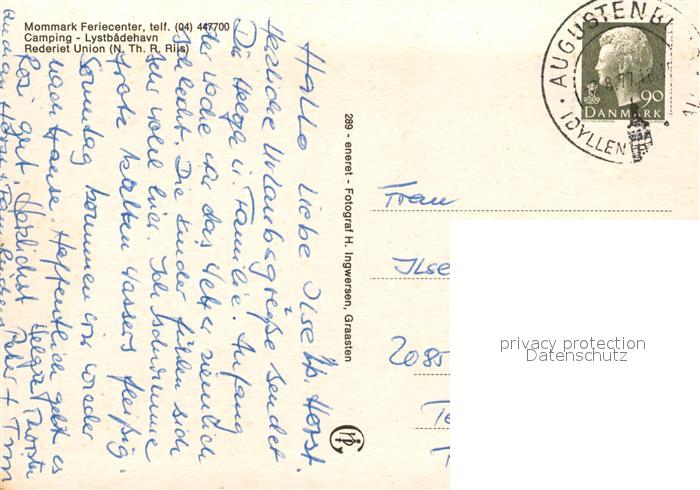 Mommark Feriecenter, telf. (04) 447700
Camping - Lystbådehavn
Rederiet Union (N. Th. R. Riis)
Hallo liebe Ilse u. Horst.
Herzliche Urlaubsgrüße sendet
Dir Helga u. Familie. Anfang
der Woche war das Wetter ziemlich
schlecht. Die Kinder fühlen sich
sehr wohl hier. Ich schwimme
trotz kalten Wassers fleißig.
Sonntag kommen wir wieder
nach Hause. Hoffentlich geht es
Rosi gut. Herzlichst Helga Thorsten
Peter +
289 - eneret - Fotograf H. Ingwersen, Graasten
AUGUSTENB
IDYLLEN
90
DANMARK
Frau
Ilse
2085
privacy protection
Datenschutz